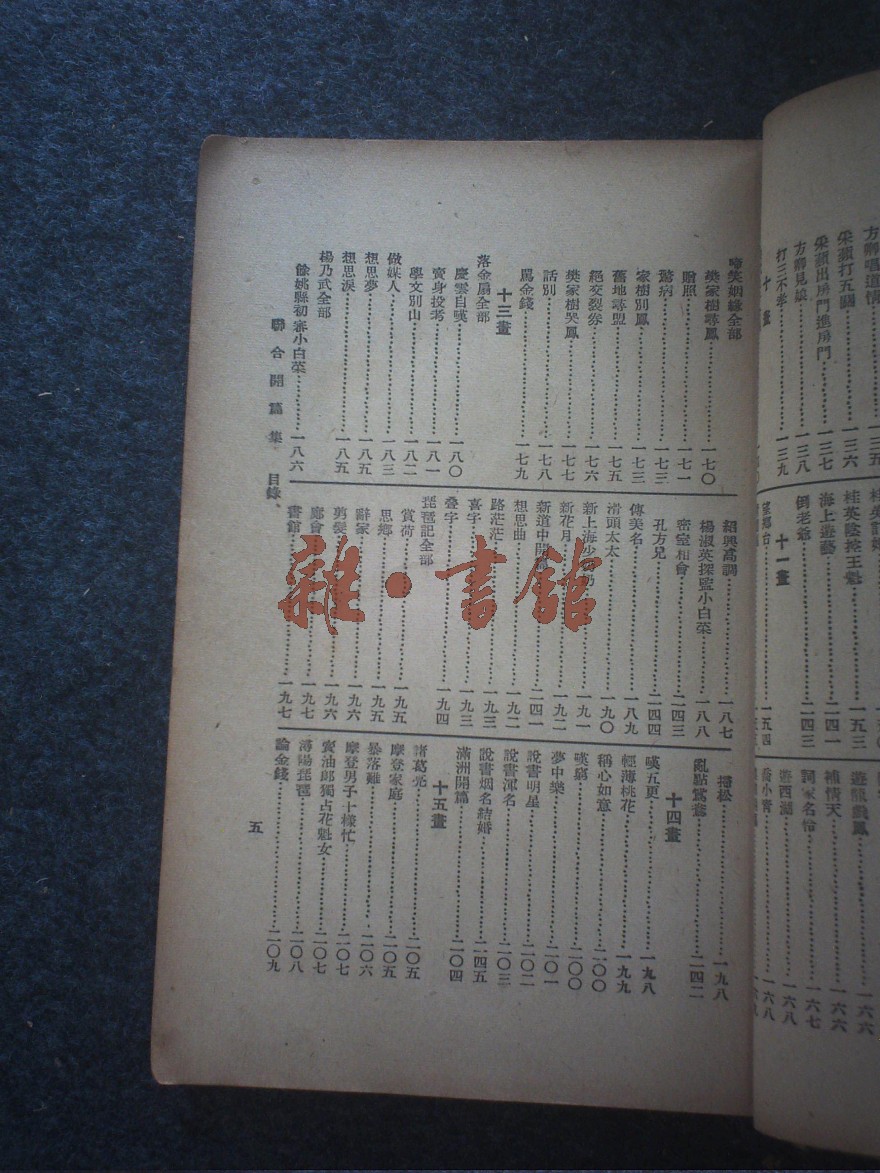 啼笑姻緣全部
樊家樹尋鳳……一七〇
贈照……一七一
驚病……一七三
家樹別鳳……一七三
舊地尋盟……一七五
絕交裂券……一七六
樊家樹哭鳳……一七七
話別……一七八
罵金錢……一七九
十三畫
落金扇全部
慶雲自嘆……一八〇
賣身投考……一八一
學文別山……一八二
做媒人……一八三
想思夢……一八五
想思淚……一八五
楊乃武全部
餘姚縣初審小白菜……一八六
紹興高調……一八七
楊淑英探監小白菜……一八八
密室相會……二四三
孔方兄……二四四
傳美名……一八九
滑頭太太……一九〇
新上海少奶奶……一九一
新花月……一九二
新道中開篇……二四一
想思曲……一九二
路茫茫……一九三
喜字……一九三
疊字……一九四
琵琶記全部
賞荷……一九五
思鄉……一九五
辭家……一九六
剪髮……一九六
廊會……一九七
書館……一九七
掃松……一九八
亂點鴛鴦……二四二
十四畫
嘆五更……一九八
輕薄桃花……一九九
稱心如意……二〇〇
嘆窮……二〇〇
夢中樂……二〇一
說書明星……二〇二
說書渾名……二〇三
說書烟名結婚……二四五
滿洲開篇……二〇四
十五畫
諸葛亮……二〇五
摩登家庭……二〇五
暴落難……二〇六
摩登男子十樣忙……二〇七
賣油郎獨占花魁女……二〇七
潯陽琵琶……二〇八
論金錢……二〇九
聯合開篇集 目錄、
五
方卿唱道情
采蘋打五關……一三六
采蘋出房門進房門……一三七
方卿見娘……一三八
打三不孝……一三九
十畫
桂英陰捲王魁……一五三
海上遊藝……二四三
倒老爺
十一畫
望鄉台……一五四
遊龍戲鳳……一六六
補情天……一六六
詞家名恰……一六七
遊西湖……一六八
喬小青……一六八
雜·書館